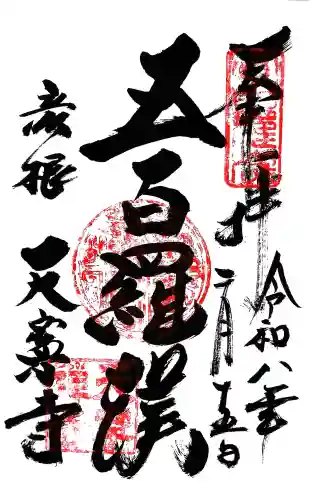 奉拝
令和八年
二月十五日
五百羅漢
彦根
天寧寺